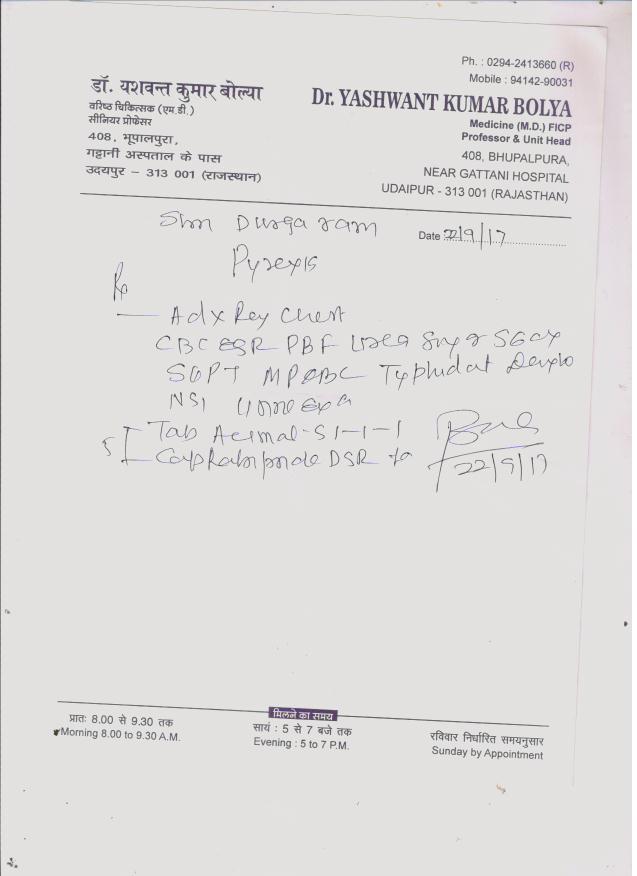 Ph. : 0294-2413660 (R)
Mobile : 94142-90031
डॉ. यशवन्त कुमार बोल्या
वरिष्ठ चिकित्सक (एम.डी.)
सीनियर प्रोफेसर
408, भूपालपुरा,
गट्टानी अस्पताल के पास
उदयपुर - 313 001 (राजस्थान)
Dr. YASHWANT KUMAR BOLYA
Medicine (M.D.) FICP
Professor & Unit Head
408, BHUPALPURA,
NEAR GATTANI HOSPITAL
UDAIPUR - 313 001 (RAJASTHAN)
Durga ram
Date 22/9/17
Pyrexia
Rx
Adx Ray Chest
CBC ESR PBF
SGPT MPQBC
NS1
Tab 1-1-1
Cap DSR
22/9/17
मिलने का समय
प्रातः 8.00 से 9.30 तक
Morning 8.00 to 9.30 A.M.
सायं : 5 से 7 बजे तक
Evening : 5 to 7 P.M.
रविवार निर्धारित समयनुसार
Sunday by Appointment